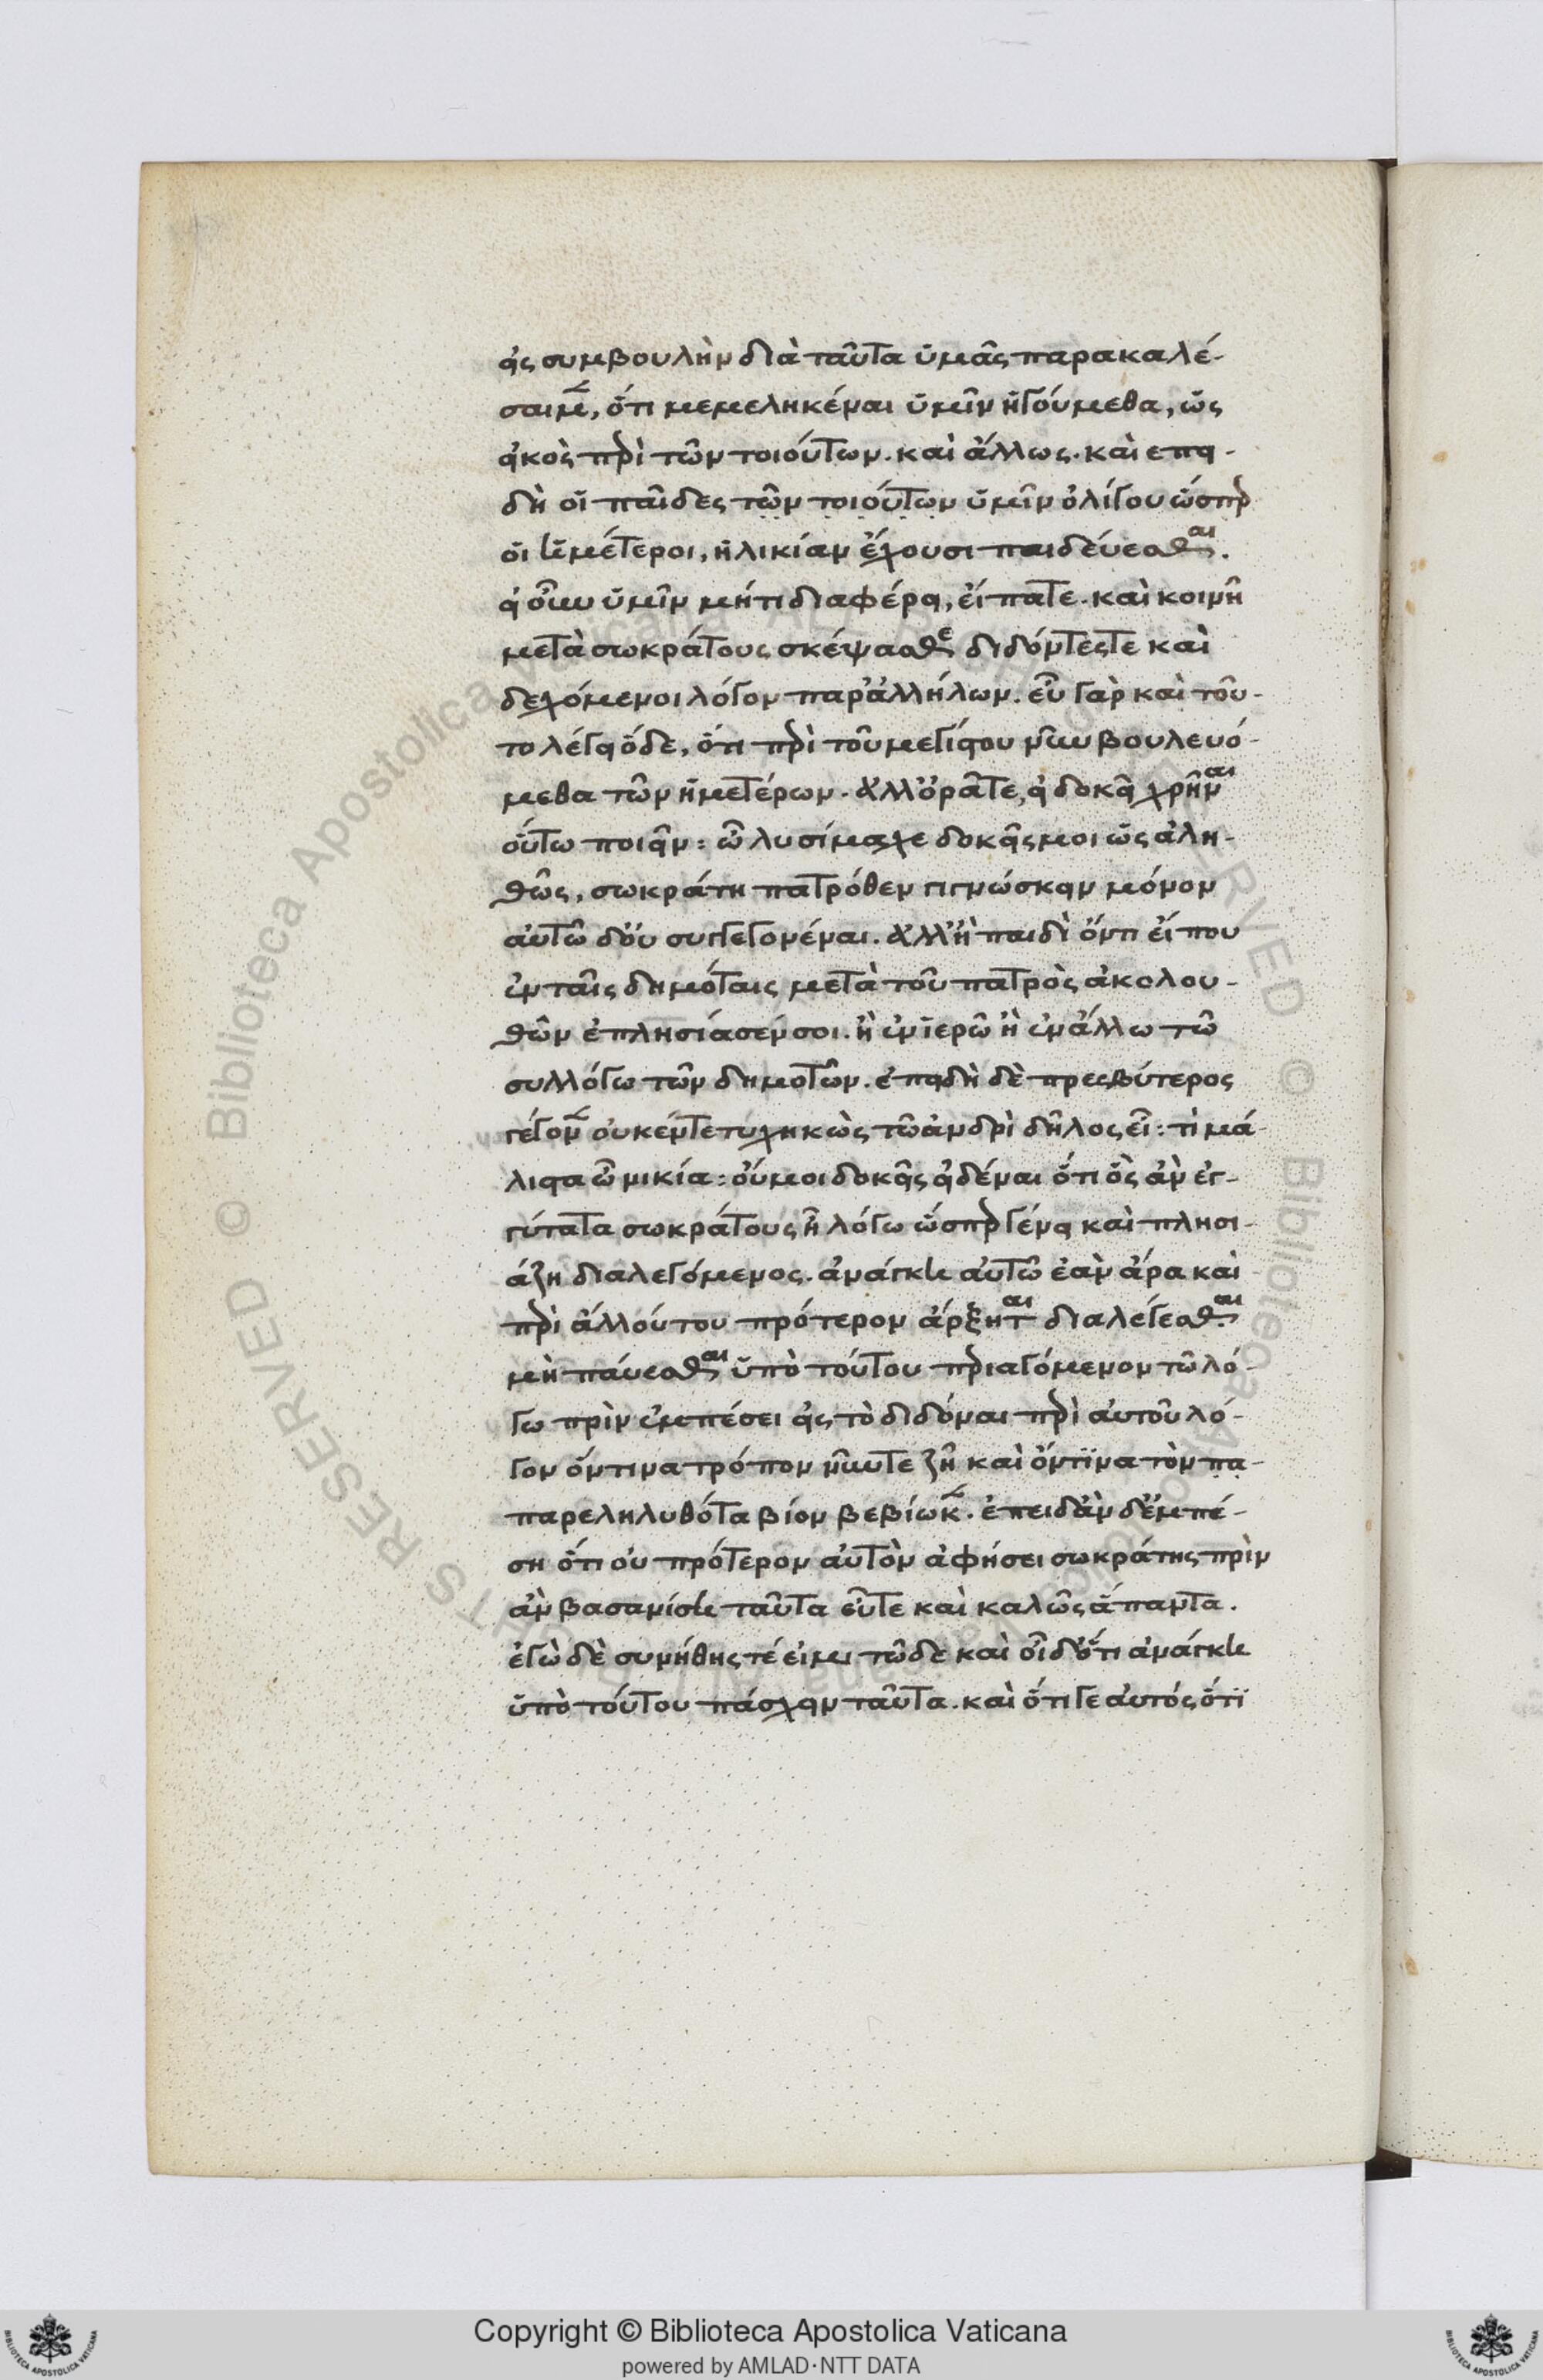 εἰς συμβουλὴν διὰ ταῦτα ὑμᾶς παρακαλέ-
σαιμ̃, ὅτι μεμεληκέναι ὑμῖν ἡγούμεθα, ὡς
εἰκὸς πρὶ τῶν τοιούτων. καὶ ἄλλως. καὶ επει-
δὴ οἱ παῖδες τῶν τοιούτων ὑμῖν ὀλίγου ὥσπρ
οἱ ἡμέτεροι, ἡλικίαν ἔχουσι παιδεύεσθαι.
εἰ οὖν ὑμῖν μήτι διαφέρει, εἴπατε. καὶ κοινῆ
μετὰ σωκράτους σκέψασθε διδόντές τε καὶ
δεχόμενοι λόγον παρ' ἀλλήλων. εὖ γὰρ καὶ τοῦ-
το λέγει ὅδε, ὅτι πρὶ τοῦ μεγίστου νῦν βουλευό-
μεθα τῶν ἡμετέρων. ἀλλ' ὁρᾶτε, εἰ δοκεῖ χρῆναι
οὕτω ποιεῖν: ὦ λυσίμαχε δοκεῖς μοι ὡς ἀλη-
θῶς, σωκράτη πατρόθεν γιγνώσκειν μόνον
αὐτῶ δ' οὐ συγγεγονέναι. ἀλλ' ἢ παιδὶ ὄντι εἴ που
ἐν ταῖς δημόταις μετὰ τοῦ πατρὸς ἀκολου-
θῶν ἐπλησίασέν σοι. ἢ ἐν ἱερῶ ἢ ἐν ἄλλω τῶ
συλλόγω τῶν δημοτῶν. ἐπειδὴ δὲ πρεσβύτερος
γέγον̃ οὐκ ἐντετυχηκὼς τῶ ἀνδρὶ δῆλος εἶ: τί μά-
λιστα ὦ νικία: οὔ μοι δοκεῖς εἰδέναι ὅτι ὃς ἂν ἐγ-
γύτατα σωκράτους ἦ λόγω ὥσπρ γένει καὶ πλησι-
άζη διαλεγόμενος. ἀνάγκη αὐτῶ ἐὰν ἄρα καὶ
πρὶ ἄλλού του πρότερον ἄρξηται διαλέγεσθαι
μὴ παύεσθαι ὑπὸ τούτου πριαγόμενον τῶ λό-
γω πρὶν ἐμπέσει εἰς τὸ διδόναι πρὶ αὑτοῦ λό-
γον ὅντινα τρόπον νῦν τε ζῆ καὶ ὅντϊνα τὸν πα-
παρεληλυθότα βίον βεβίωκ̃. ἐπειδὰν δ' ἐμπέ-
ση ὅτι οὐ πρότερον αὐτὸν ἀφήσει σωκράτης πρὶν
ἂν βασανίση ταῦτα εὖ τε καὶ καλῶς ἅπαντα.
ἐγὼ δὲ συνήθης τέ εἰμι τῶδε καὶ οἶδ' ὅτι ἀνάγκη
ὑπὸ τούτου πάσχειν ταῦτα. καὶ ὅτι γε αὐτός ὅτϊ
Copyright © Biblioteca Apostolica Vaticana
powered by AMLAD·NTT DATA